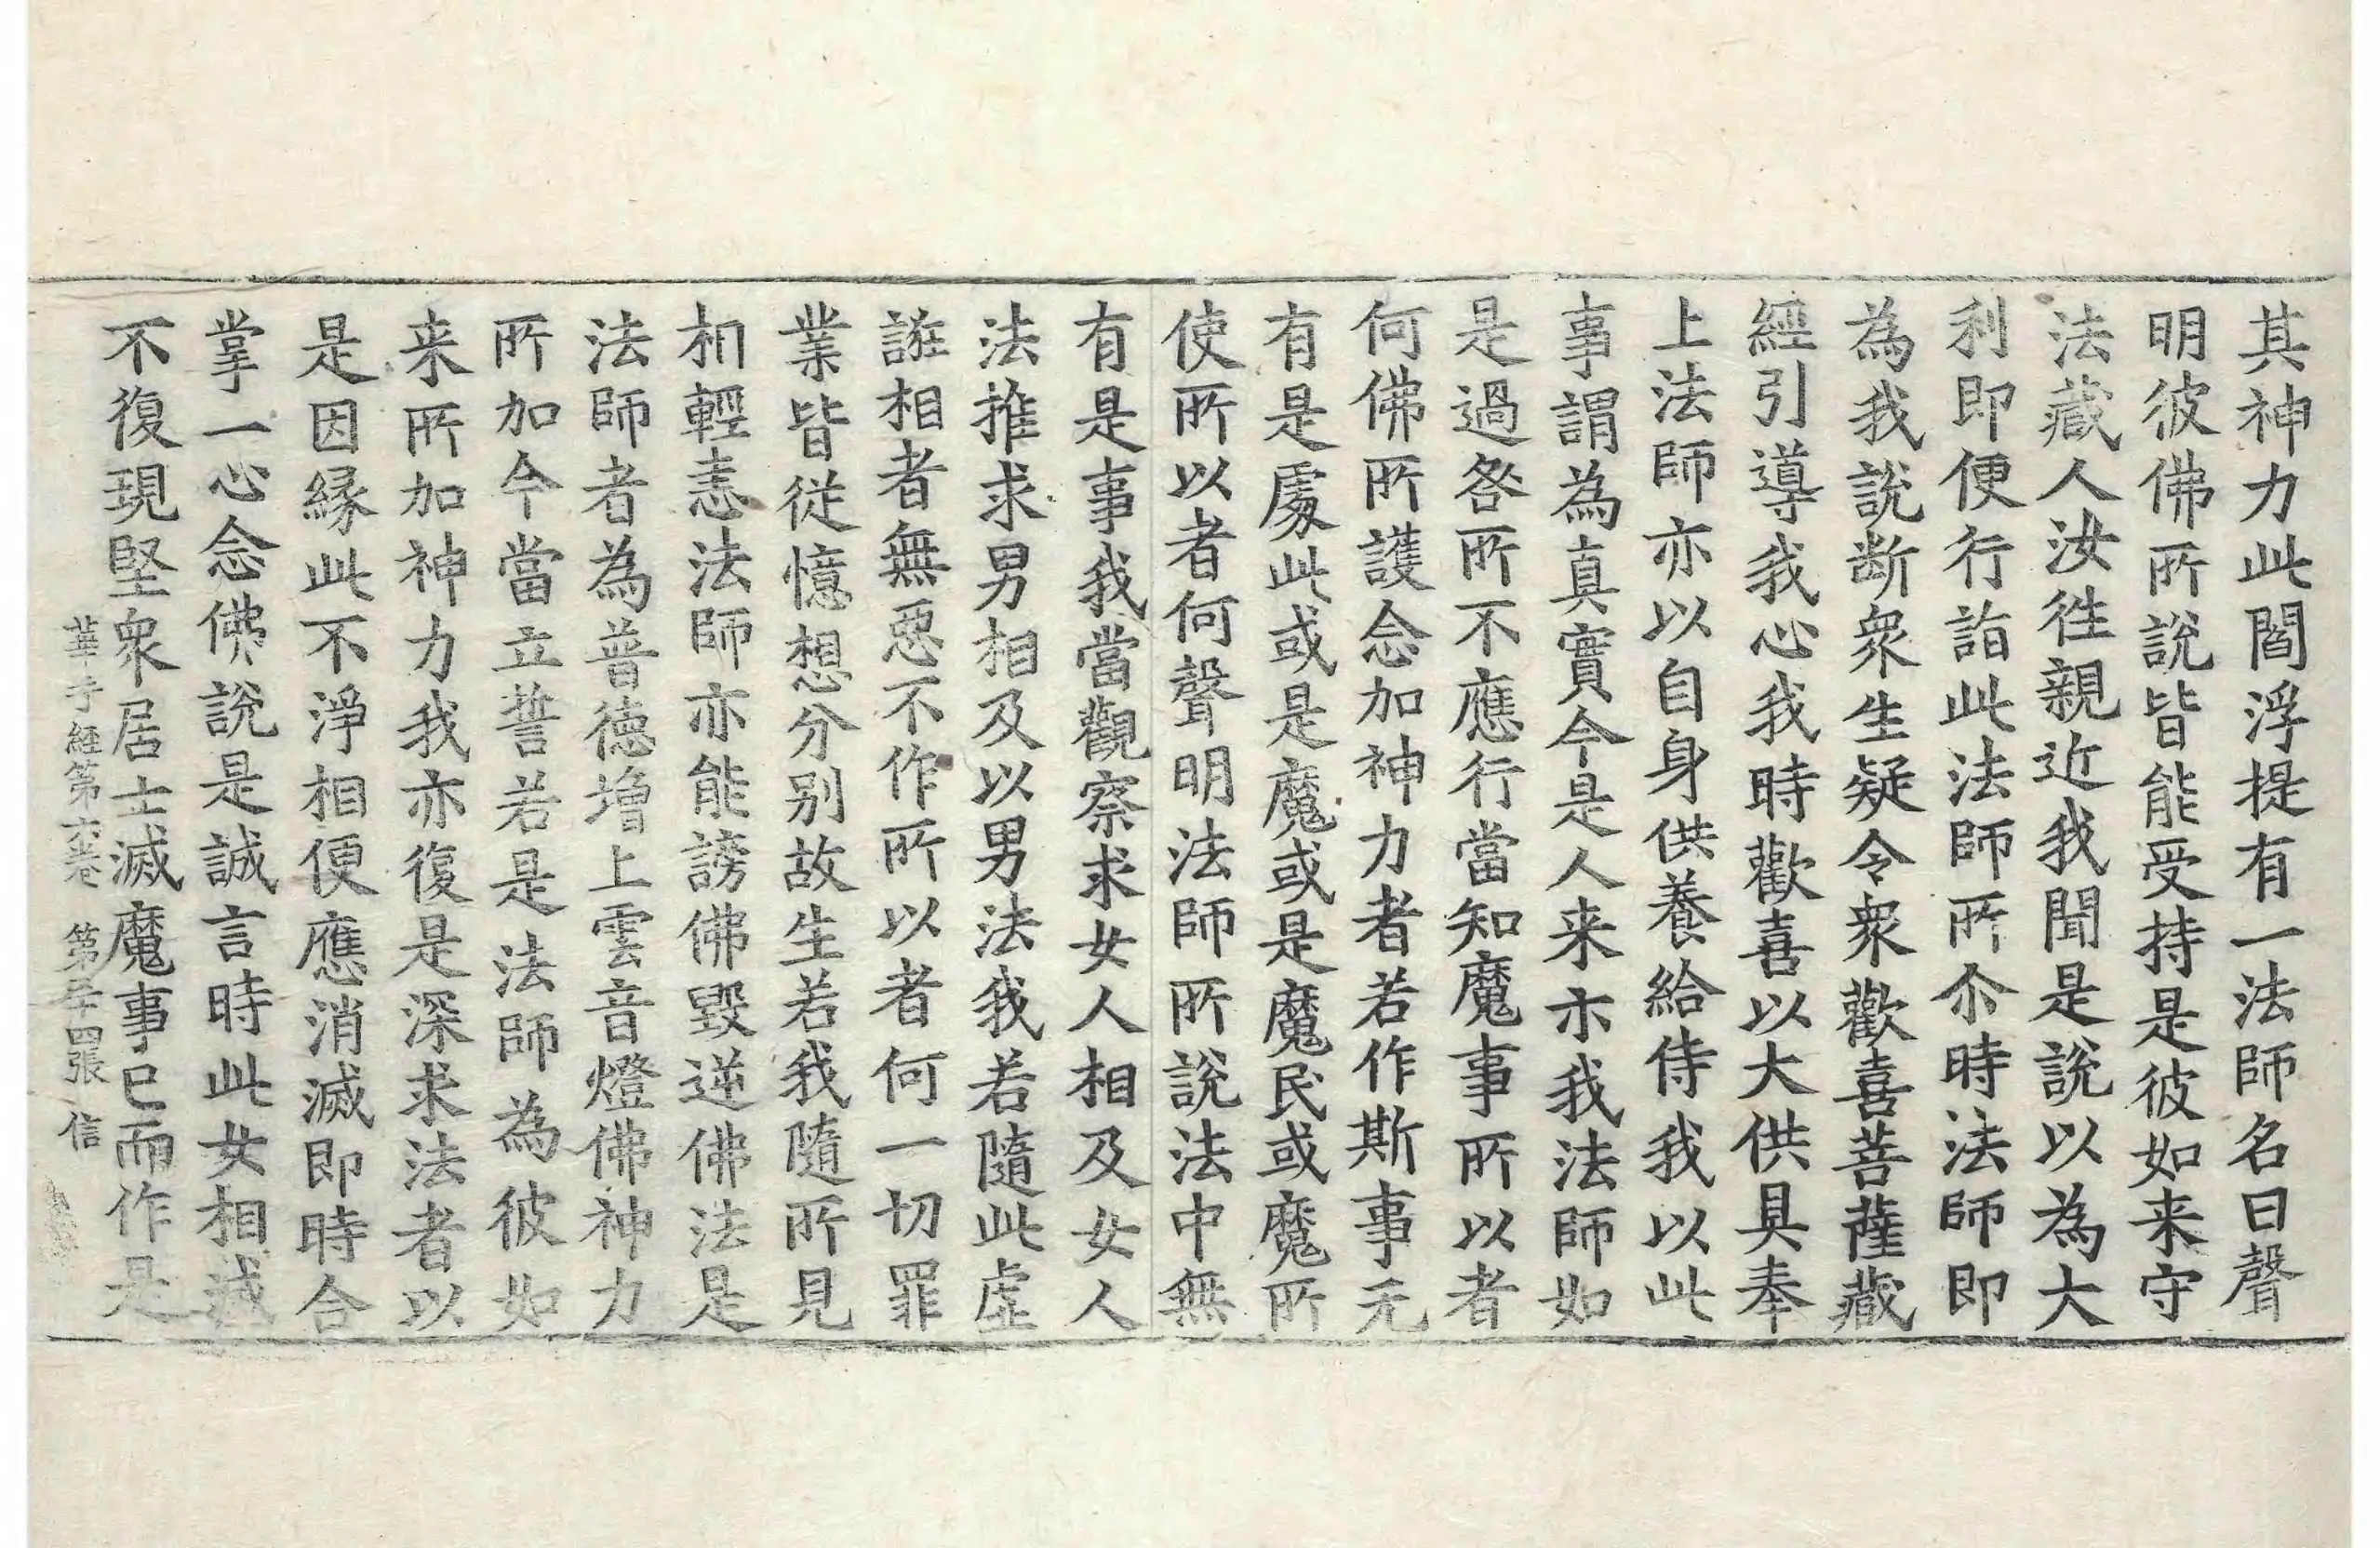 其神力此閻浮提有一法師名曰聲
明彼佛所說皆能受持是彼如来守
法藏人汝徃親近我聞是說以為大
利即便行詣此法師所尒時法師即
為我說断衆生疑令衆歡喜菩薩藏
經引導我心我時歡喜以大供具奉
上法師亦以自身供養給侍我以此
事謂為真實今是人来示我法師如
是過咎所不應行當知魔事所以者
何佛所護念加神力者若作斯事无
有是處此或是魔或是魔民或魔所
使所以者何聲明法師所說法中無
有是事我當觀察求女人相及女人
法推求男相及以男法我若隨此虛
誑相者無惡不作所以者何一切罪
業皆從憶想分别故生若我隨所見
相輕恚法師亦能謗佛毀逆佛法是
法師者為普德增上雲音燈佛神力
所加今當立誓若是法師為彼如
来所加神力我亦復是深求法者以
是因縁此不淨相便應消滅即時合
掌一心念佛說是誠言時此女相滅
不復現堅衆居士滅魔事已而作是
華手經第六卷 第三十四張 信